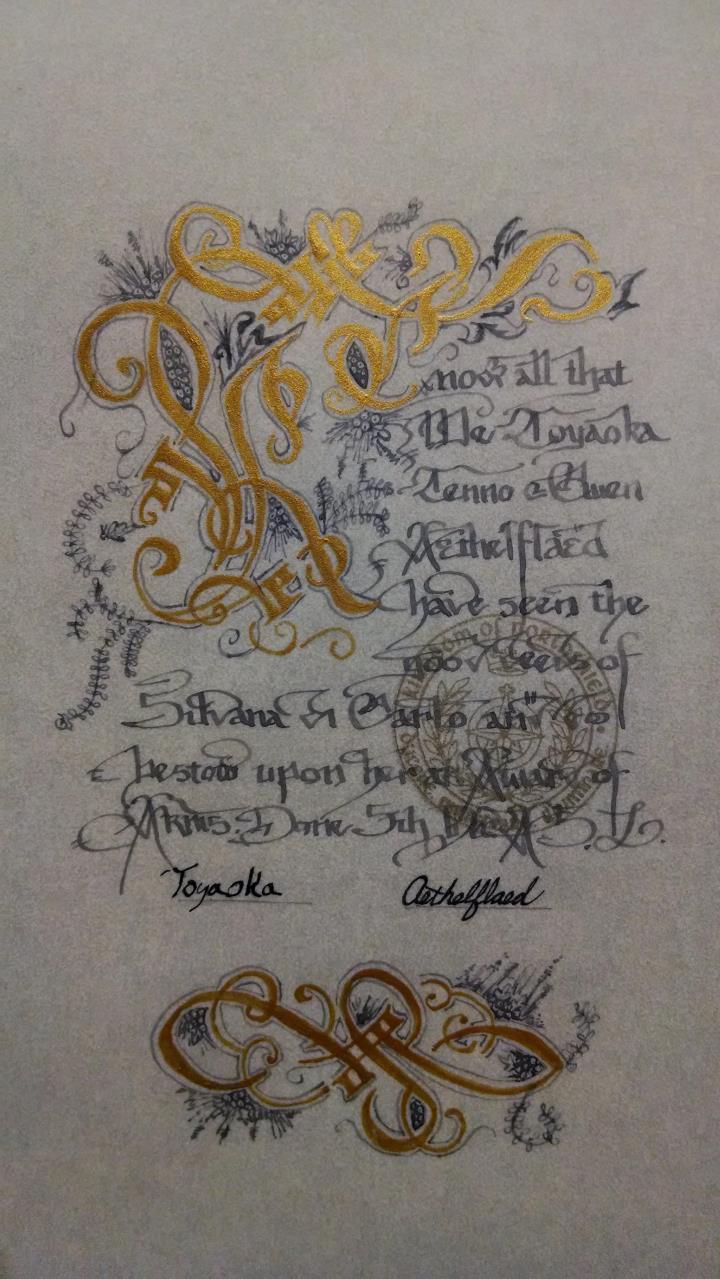 Know all that
We Toyaoka
Tenno & Cwen
Aethelflaed
have seen the
good deeds of
Silvana di Carlo and do
bestow upon her an Award of
Arms. Done 5th A.S.
Toyaoka Aethelflaed
kingdom of northshield